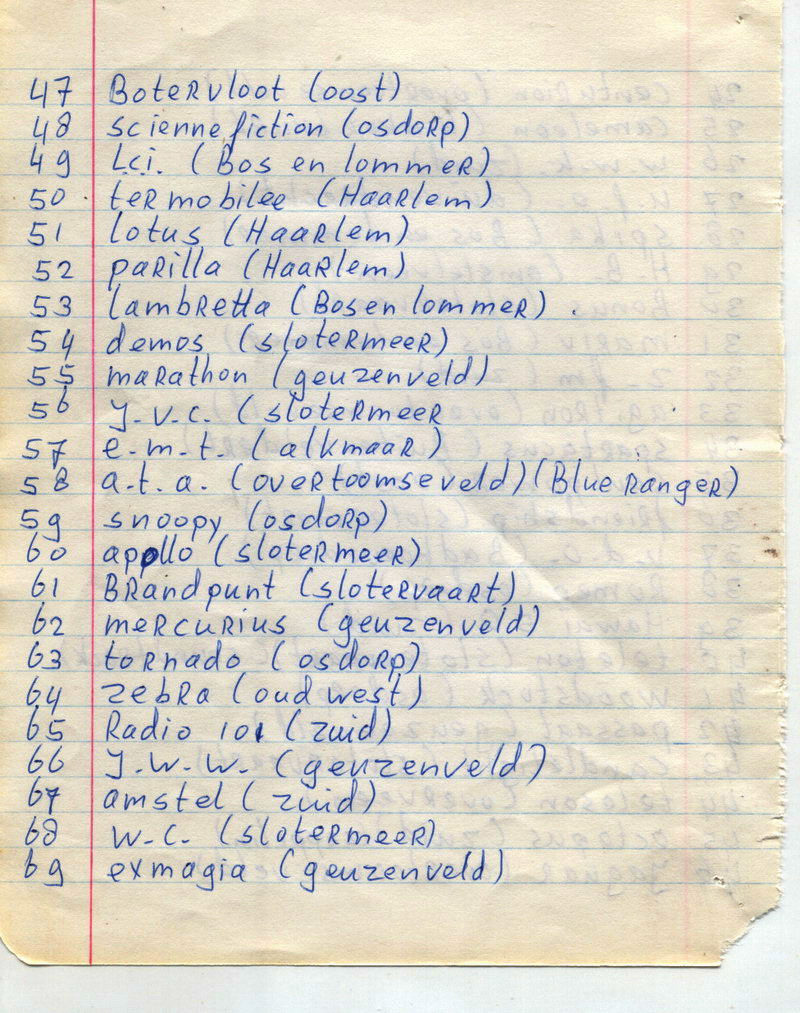 47 Botervloot (oost)
48 sciennefiction (osdorp)
49 L.c.i. (Bos en lommer)
50 termobilee (Haarlem)
51 lotus (Haarlem)
52 parilla (Haarlem)
53 lambretta (Bos en lommer)
54 demos (slotermeer)
55 marathon (geuzenveld)
56 J.v.c. (slotermeer
57 e.m.t. (alkmaar)
58 a.t.a. (overtoomseveld) (Blue Ranger)
59 snoopy (osdorp)
60 apollo (slotermeer)
61 Brandpunt (slotervaart)
62 mercurius (geuzenveld)
63 tornado (osdorp)
64 zebra (oud west)
65 Radio 101 (zuid)
66 J.w.w. (geuzenveld)
67 amstel (zuid)
68 w.c. (slotermeer)
69 exmagia (geuzenveld)